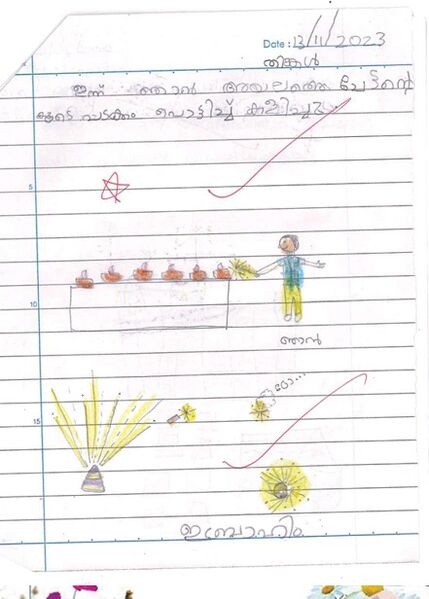 Date : 13/11/2023
തിങ്കൾ
ഇന്ന് ഞാൻ അയലത്തെ ചേട്ടന്റെ
കൂടെ പടക്കം പൊട്ടിച്ച് കളിച്ചു.
5
10
ഞാൻ
ഠോ...
15
ഇബ്രാഹിം